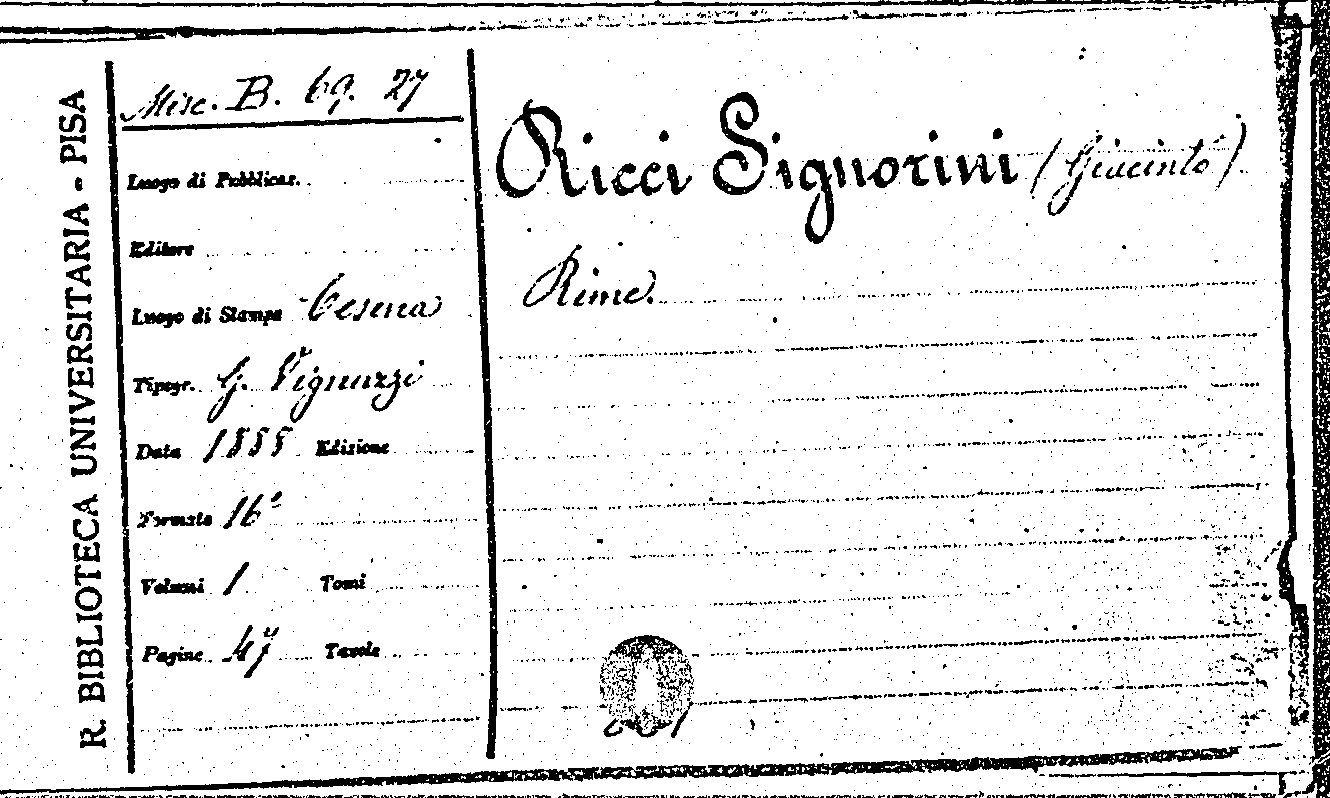 R. BIBLIOTECA UNIVERSITARIA - PISA
Misc. B. 69. 27
Luogo di Pubblicaz.
Editore
Luogo di Stampa Cesena
Tipogr. G. Vignuzzi
Data 1888 Edizione
Formato 16°
Volumi 1 Tomi
Pagine 47 Tavole
Ricci Signorini (Giacinto)
Rime.